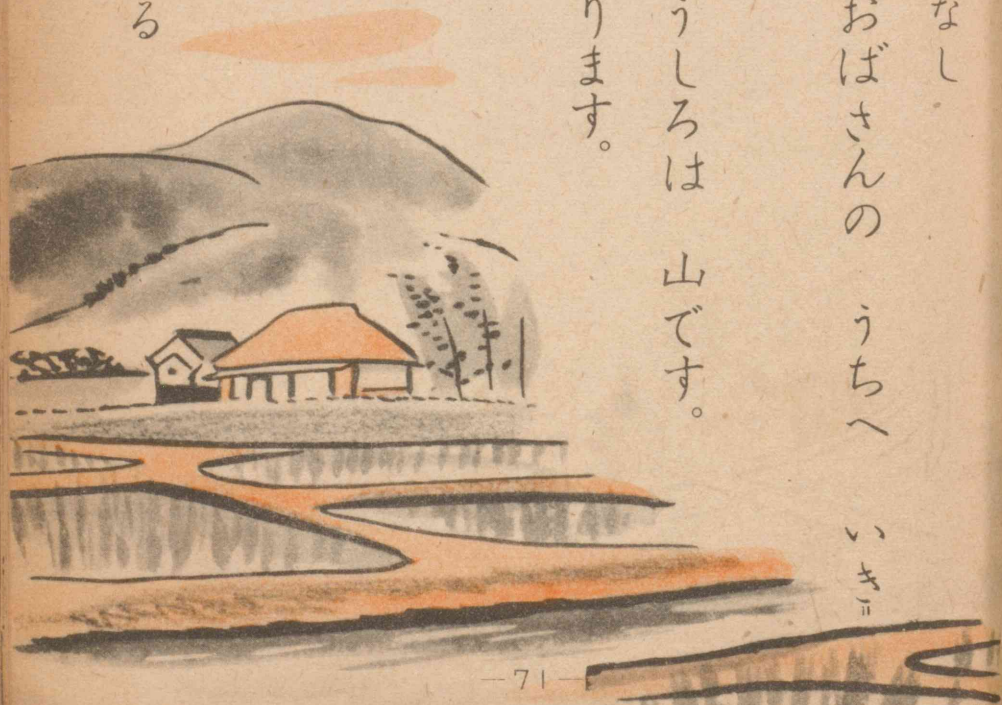 なし
おばさんの うちへ いき＝
うしろは 山です。
ります。
る
—71—